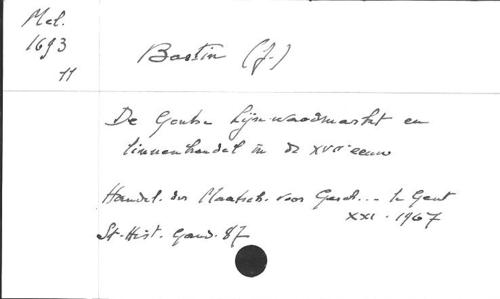 Mel.
1693
11
Bastin (J.)
De Gentse Lijnwaadmarkt en
linnenhandel in de XVIIe eeuw
Handel. der Maatsch. voor Gesch... te Gent
XXI. 1967
St. Hist. Gand. 87